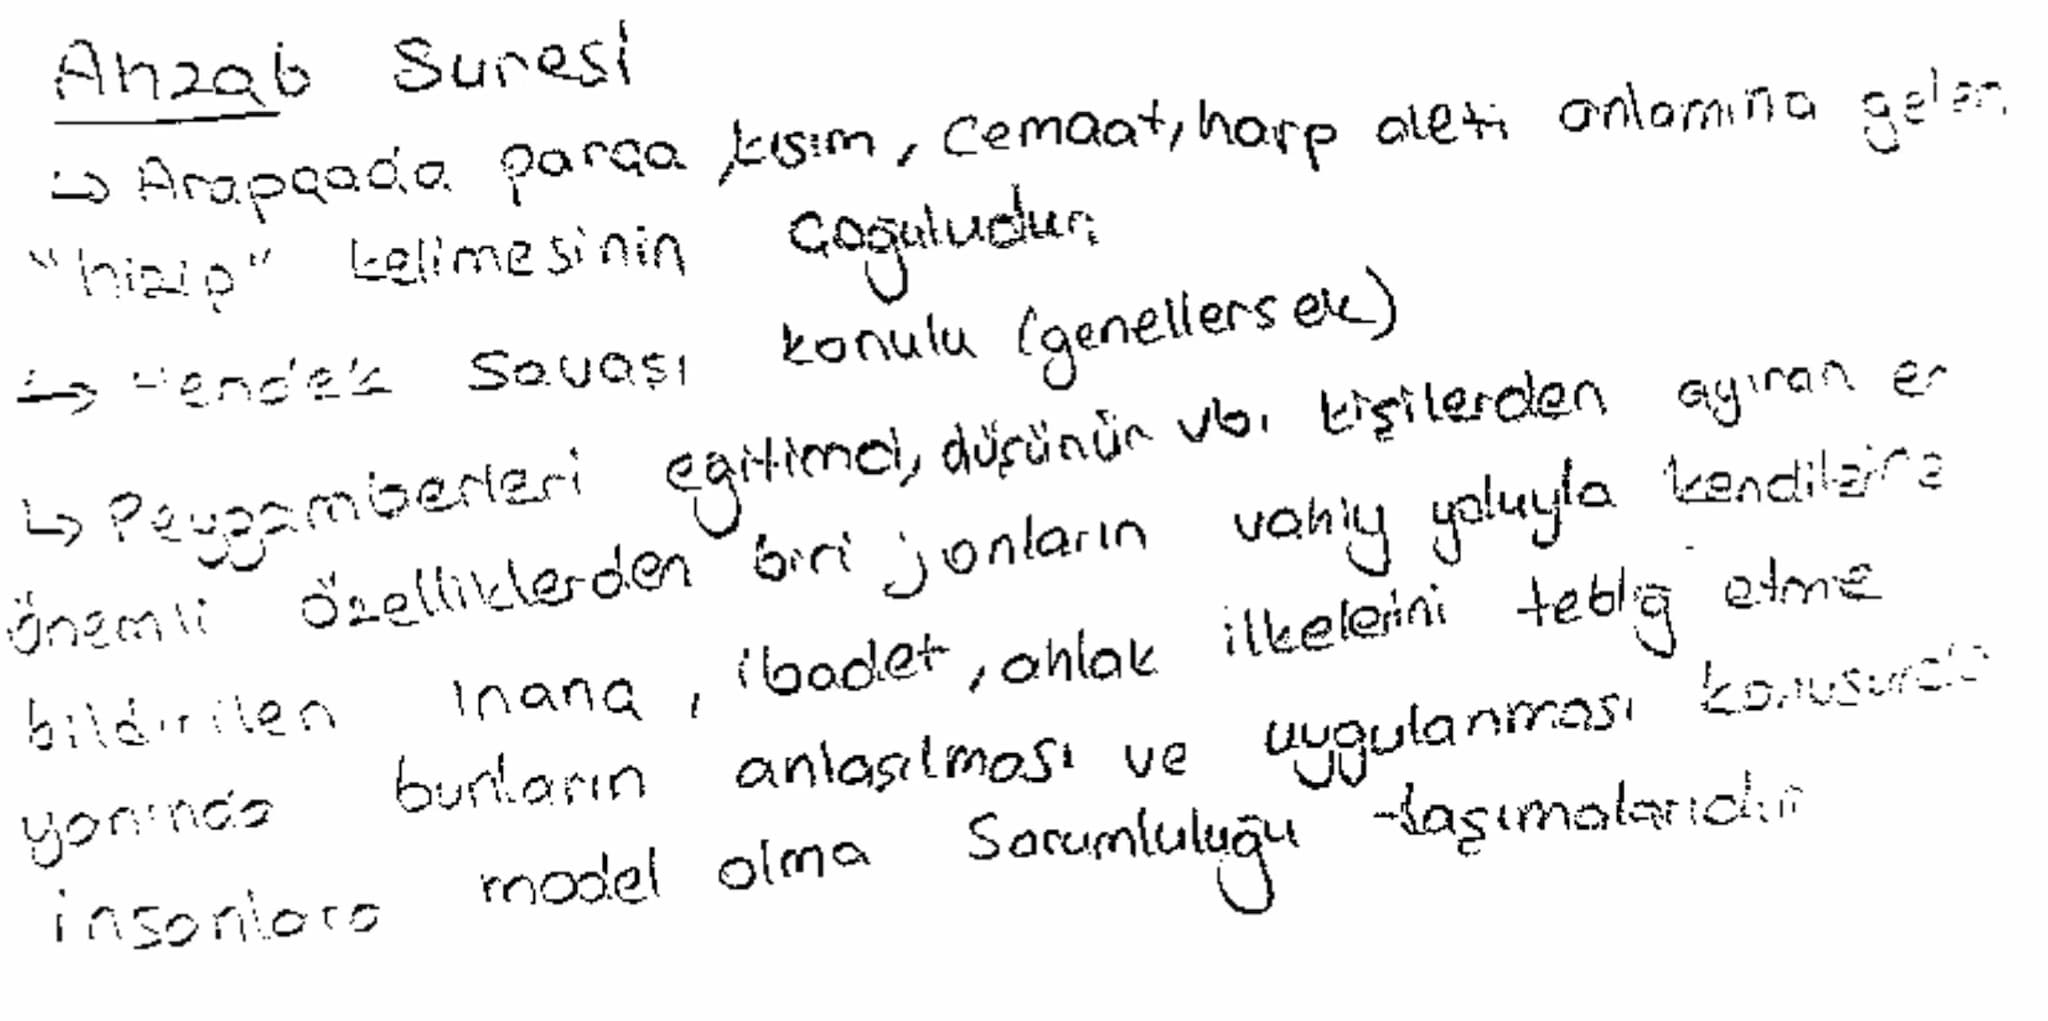 Ahzab Suresi
↳ Arapçada parça, kısım, cemaat, harp aleti anlamına gelen
"hizip" kelimesinin çoğuludur.
↳ Hendek Savaşı konulu (genellersek)
↳ Peygamberleri eğitimci, düşünür vb. kişilerden ayıran en
önemli özelliklerden biri; onların vahiy yoluyla kendilerine
bildirilen inanç, ibadet, ahlak ilkelerini tebliğ etme
yanında bunların anlaşılması ve uygulanması konusunda
insanlara model olma sorumluluğu taşımalarıdır